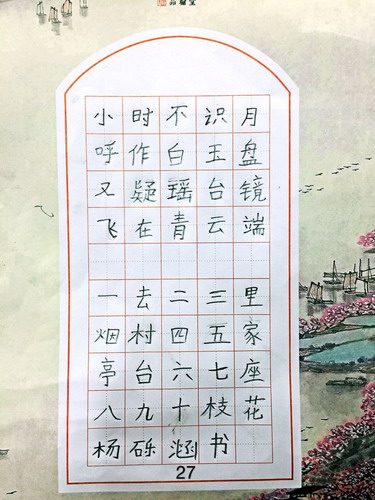 小时不识月
呼作白玉盘
又疑瑶台镜
飞在青云端
一去二三里
烟村四五家
亭台六七座
八九十枝花
杨砾涵书
27